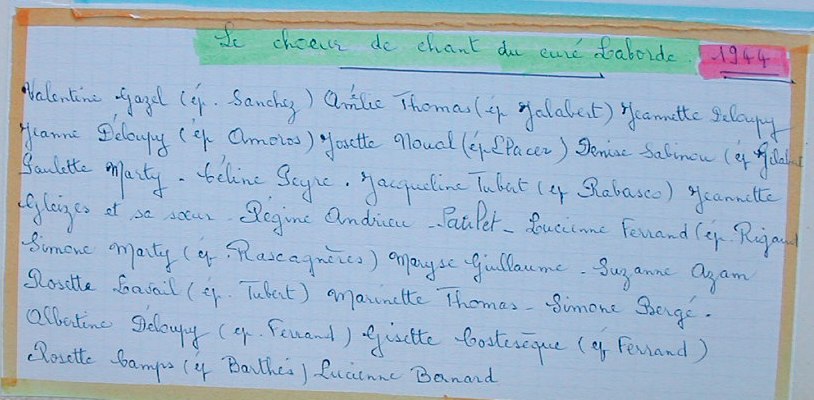 Le choeur de chant du curé Laborde. 1944
Valentine Gazel (ép. Sanchez) Amélie Thomas (ép Jalabert) Jeannette Deloupy
Jeanne Déloupy (ép Amoros) Josette Noual (ép Pacer) Denise Sabinou (ép
Paulette Marty - Céline Peyre. Jacqueline Tubert (ép Rabasco) Jeannette
Gleizes et sa sœur - Régine Andrieu - - Lucienne Ferrand (ép. Rigaud
Simone Marty (ép. Rascagnères) Maryse Guillaume - Suzanne Azam
Rosette Lavail (ép. Tubert) Marinette Thomas - Simone Bergé.
Albertine Déloupy (ép. Ferrand) Gisette Costesèque (ép Ferrand)
Rosette Camps (ép Barthés) Lucienne Bernard